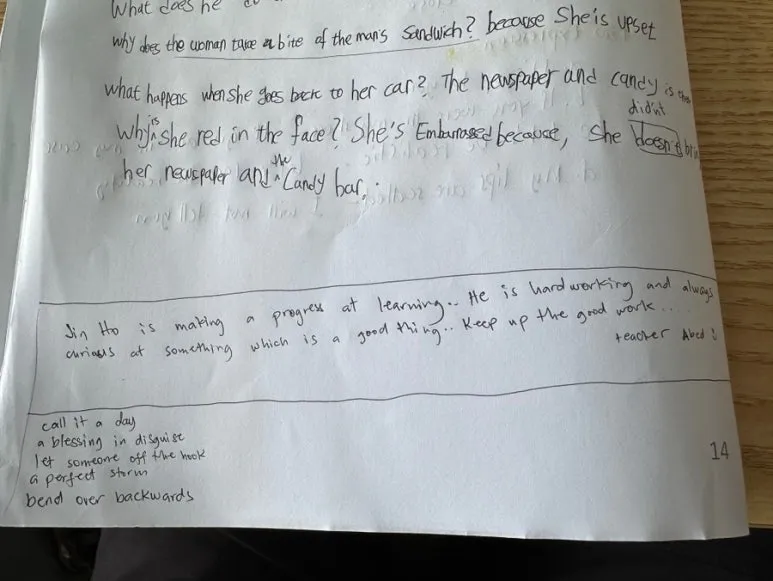 What does he
why does the woman take a bite of the man's sandwich? because She is upset
what happens when she goes back to her car? The newspaper and candy is
didn't
Why is she red in the face? She's Embarrassed because, she doesn't
her newspaper and the Candy bar.
Jin Ho is making a progress at learning.. He is hardworking and always
curious at something which is a good thing.. Keep up the good work...
teacher Abed :)
call it a day
a blessing in disguise
let someone off the hook
a perfect storm
bend over backwards
14